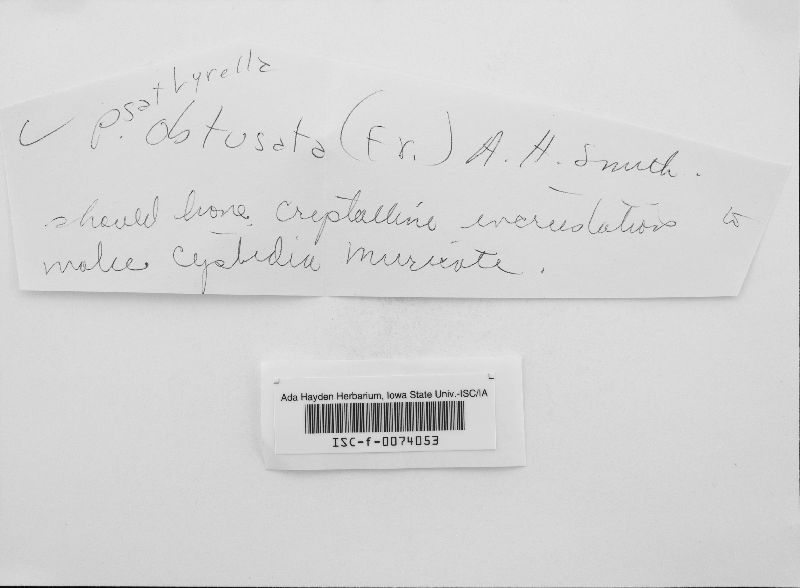 Psathyrella
✓ P. obtusata (Fr.) A. H. Smith.
should have crystalline incrustations to
make cystidia muricate.
Ada Hayden Herbarium, Iowa State Univ.-ISC/IA
ISC-f-0074053